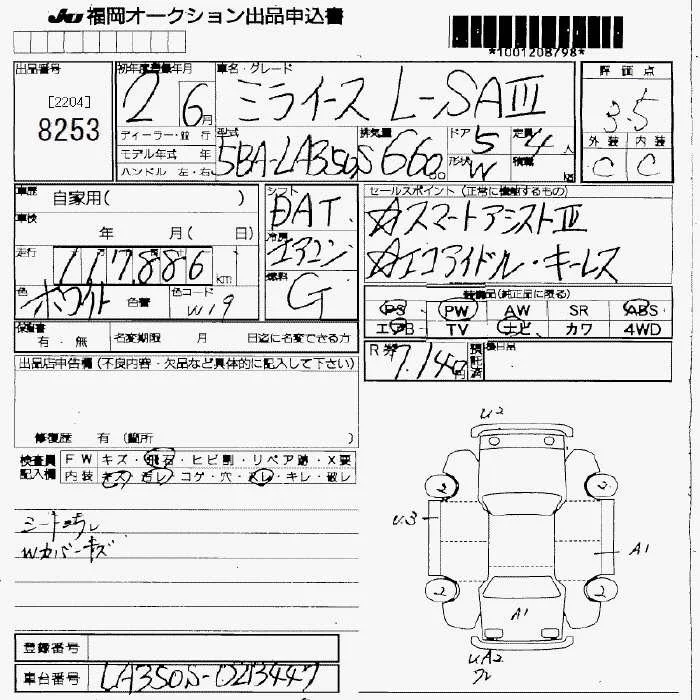 JU 福岡オークション出品申込書
*1001208798*
出品番号 初年度登録年月 車名・グレード 評価点
[2204]
8253
2年6月 ミライース L-SAIII 3.5
ディーラー・並行 型式 排気量 ドア 定員 外装 内装
モデル年式 年 5BA-LA350S 660.00 5 4人 C C
ハンドル 左・右 形状 W 積載 kg
車歴 自家用( ) シフト セールスポイント(正常に機能するもの)
車検 年 月( 日) DAT ☆スマートアシストIII
走行 117,886 KM 冷房 エアコン ☆エコアイドル・キーレス
色 ホワイト 色替 色コード W19 燃料 G
装備品(純正品に限る)
PS PW AW SR ABS
エアB TV ナビ カワ 4WD
保証書 有・無 名変期限 月 日迄に名変できる方
R券 7,140円 預託済
出品店申告欄(不良内容・欠品など具体的に記入して下さい)
修復歴 有(箇所 )
検査員記入欄 FW キズ・飛石・ヒビ割・リペア跡・X要
内装 キズ・汚レ・コゲ・穴・スレ・キレ・破レ
シート汚レ
Wカバーキズ
U2
2 2
U3
A1
2 2
A1
UA2
フレ
登録番号
車台番号 LA350S-0213447